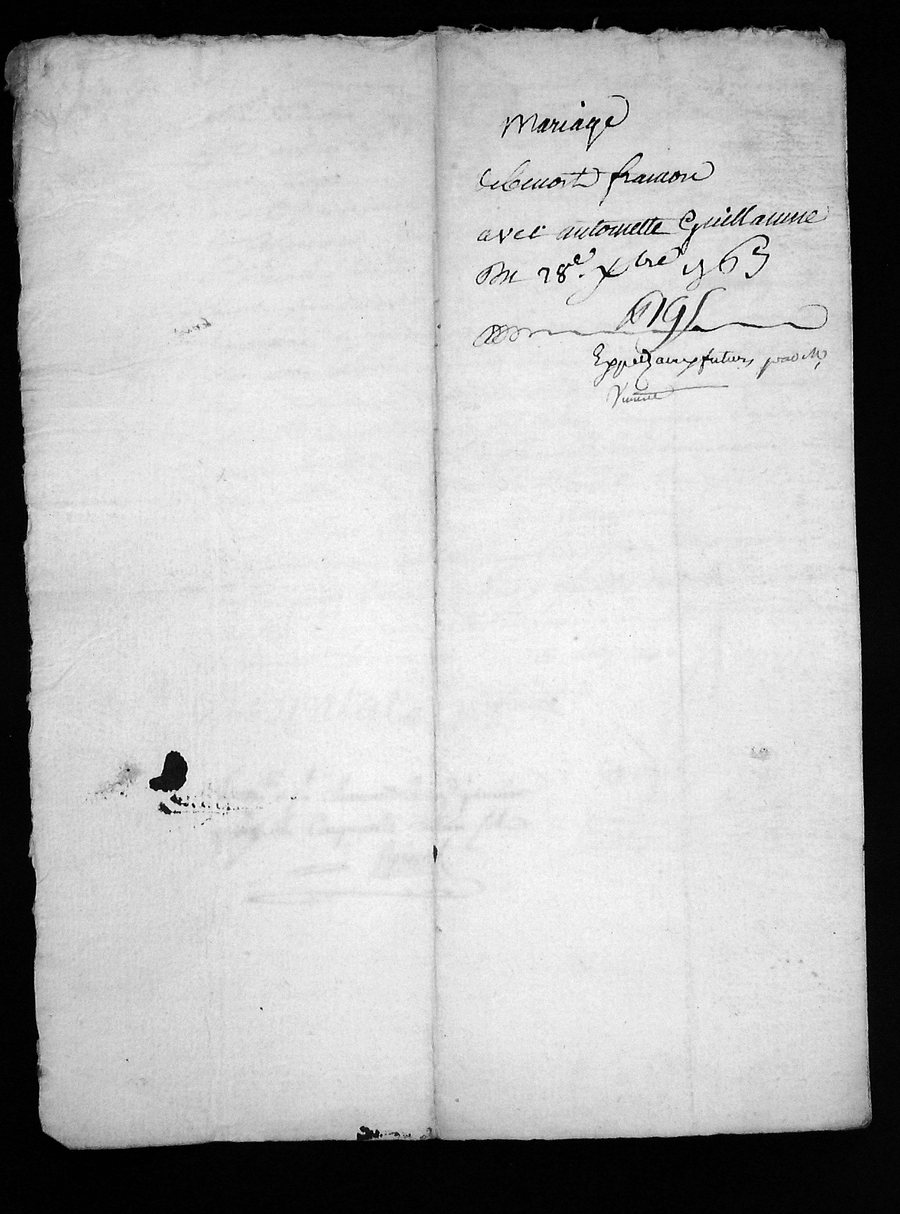 Mariage
de benoit framon
avec antoinette Guillaume
Du 28e. xbre 1763
Expédié aux futurs par Me
Vincent